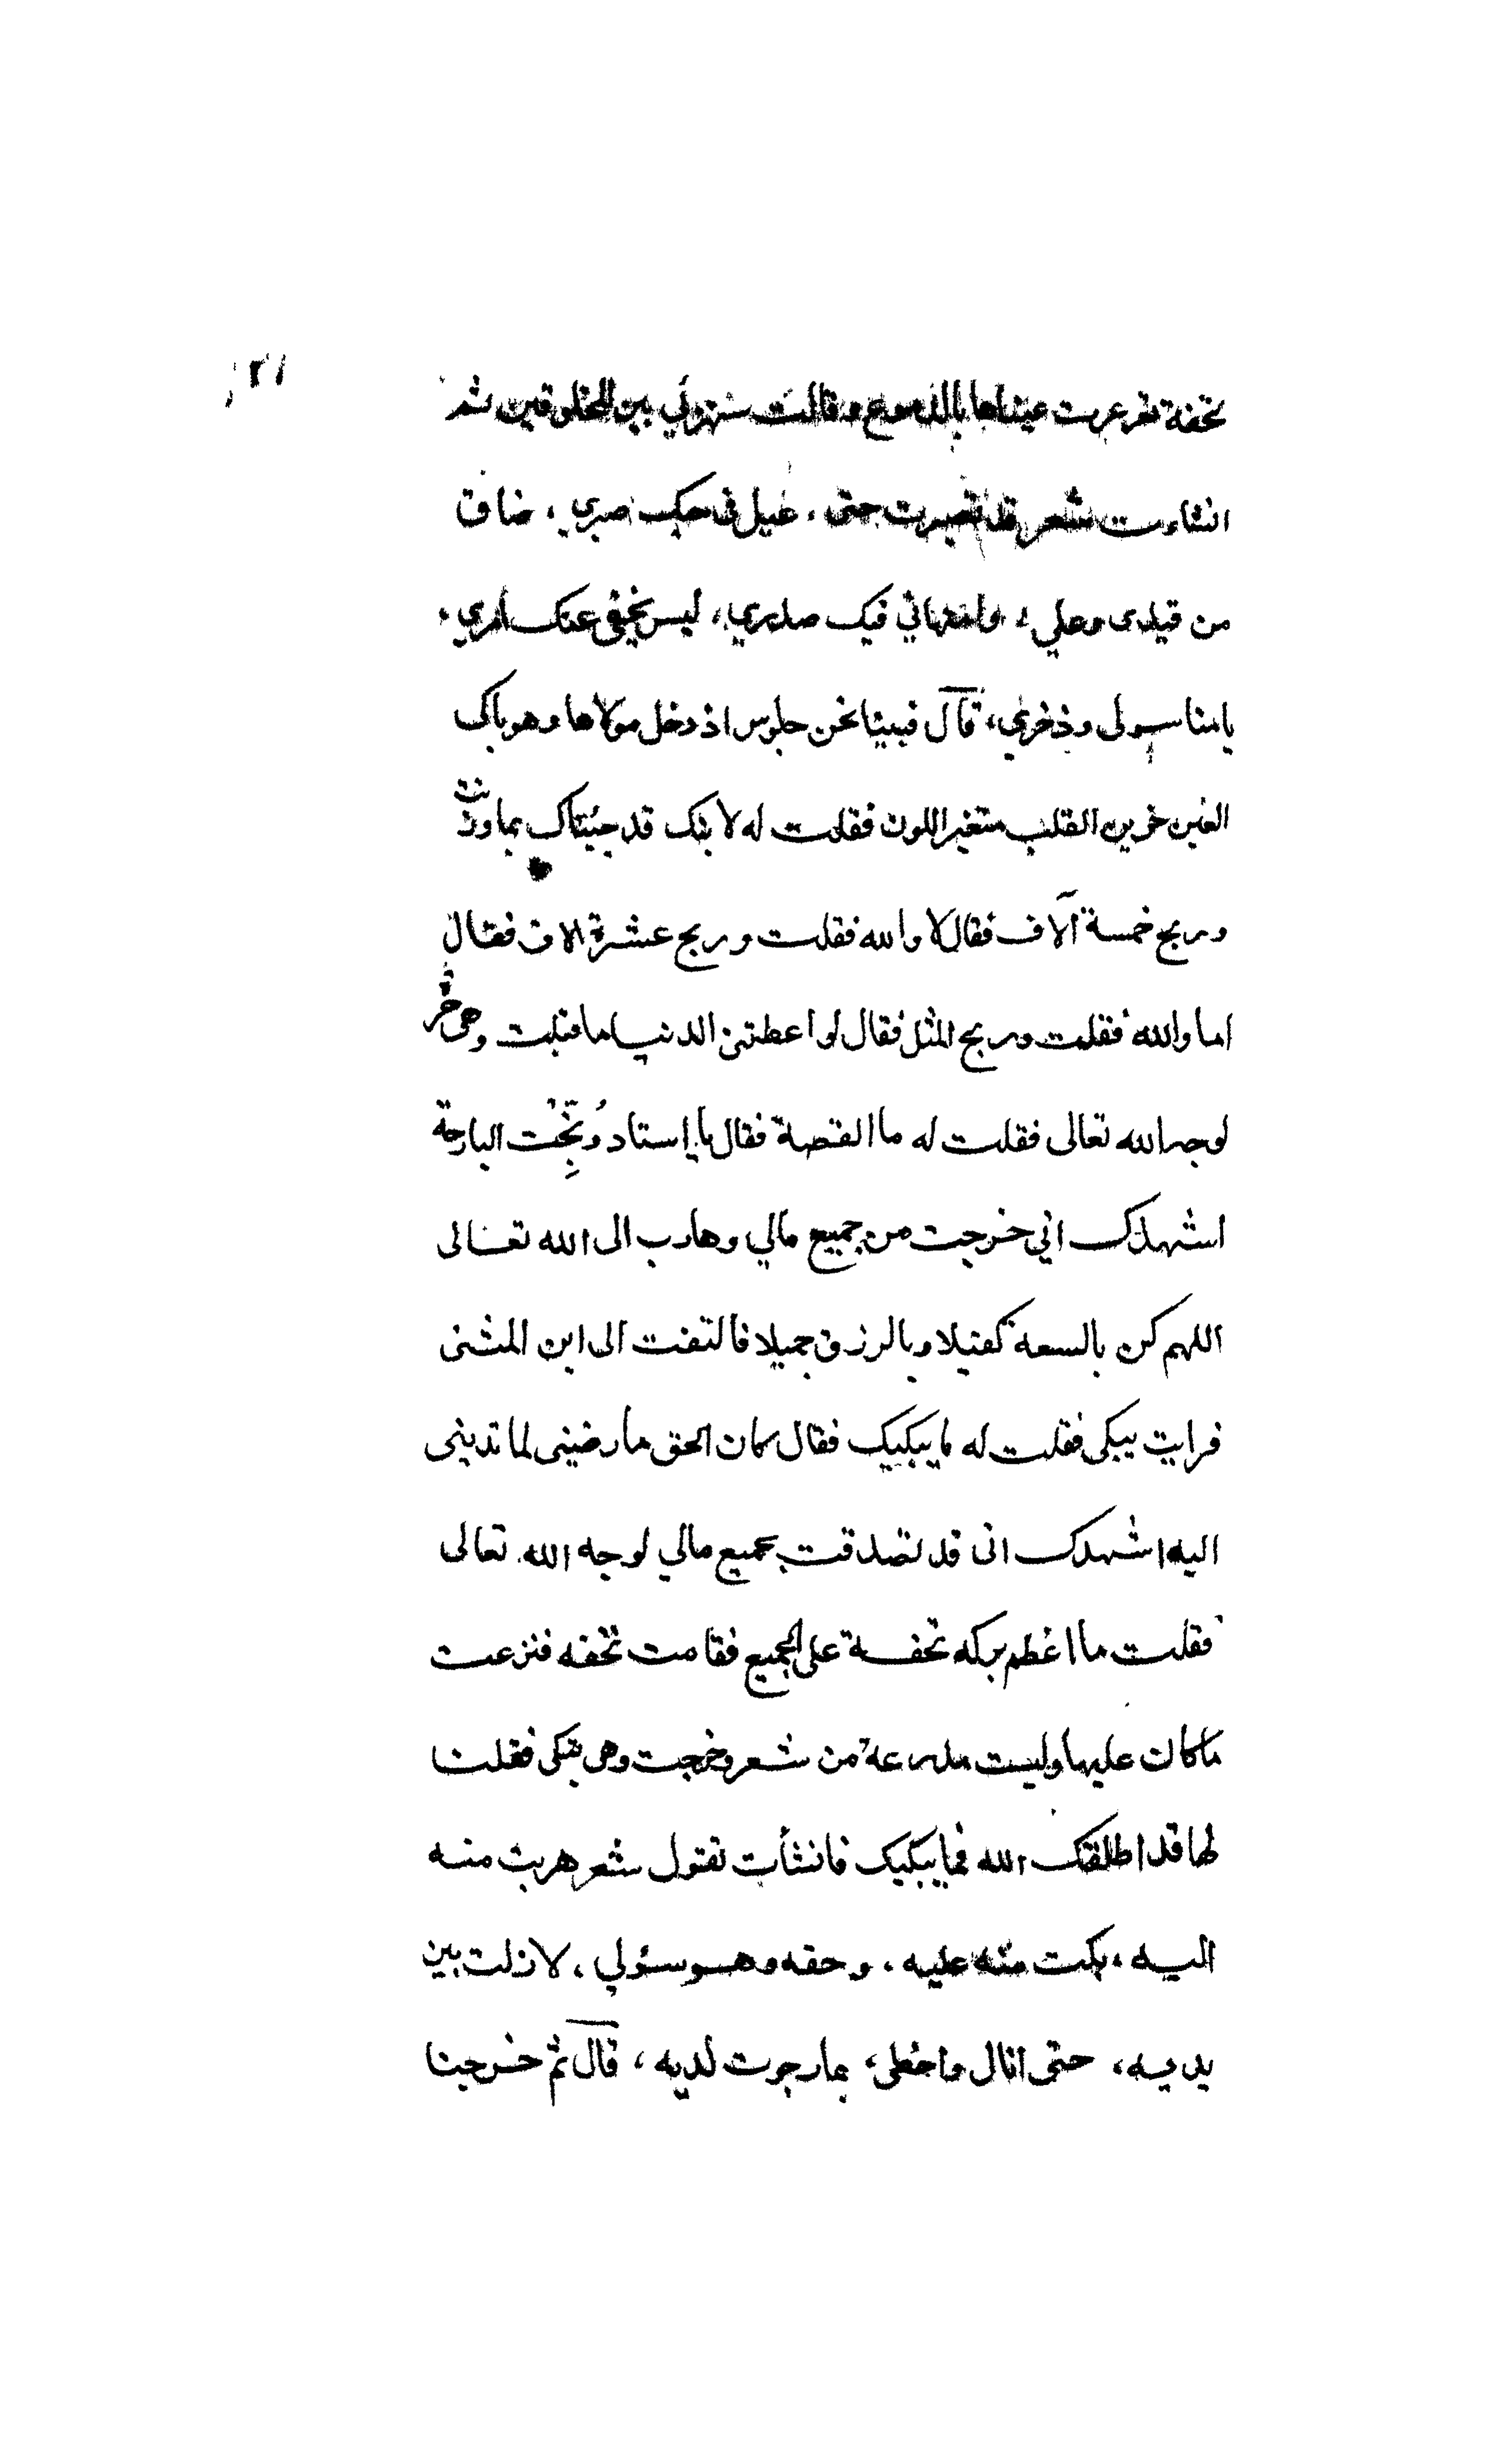 ٢١
تحفة تغرغرت عيناها بالدموع وقالت شهرتني بين المخلوقين ثم
انشاءت شعر قد تصبرت حتى، عيل في حبك صبري، ضاق
من قيدى وعلي، وامتهاني فيك صدري، ليس يخفى عنك امري،
يا منا سولى وذخري، قال فبينا نحن جلوس اذ دخل مولاها وهو باكى
العين حزين القلب متغير اللون فقلت له لا بئك قد جيئتاك بما وزنت
وربح خمسة آلاف فقال لا والله فقلت وربح عشرة الاف فقال
اما والله فقلت وربح المثل فقال لو اعطتنى الدنيا ما قبلت وهى حرة
لوجه الله تعالى فقلت له ما القصة فقال يا إستاد وُبِّخْت البارحة
اشهدك اني خرجت من جميع مالي وهارب الى الله تعالى
اللهم كن بالسعة كفيلا وبالرزق جميلا فالتفت الى ابن المثنى
فرايت يبكى فقلت له ما يبكيك فقال كان الحق ما رضينى لما ندبنى
اليه اشهدك انى قد تصدقت بجميع مالي لوجه الله تعالى
فقلت ما اعظم بركه تحفة على الجميع فقامت تحفه فنزعت
ما كان عليها ولبست مدرعة من شعر وخرجت وهى تبكى فقلنا
لها قد اطلقك الله فما يبكيك فانشأت تقول شعر هربت منه
اليه، بكت منه عليه، وحقه وهو سؤلي، لا زلت بين
يديه، حتى انال واحظى، بما رجوت لديه، قال ثم خرجنا